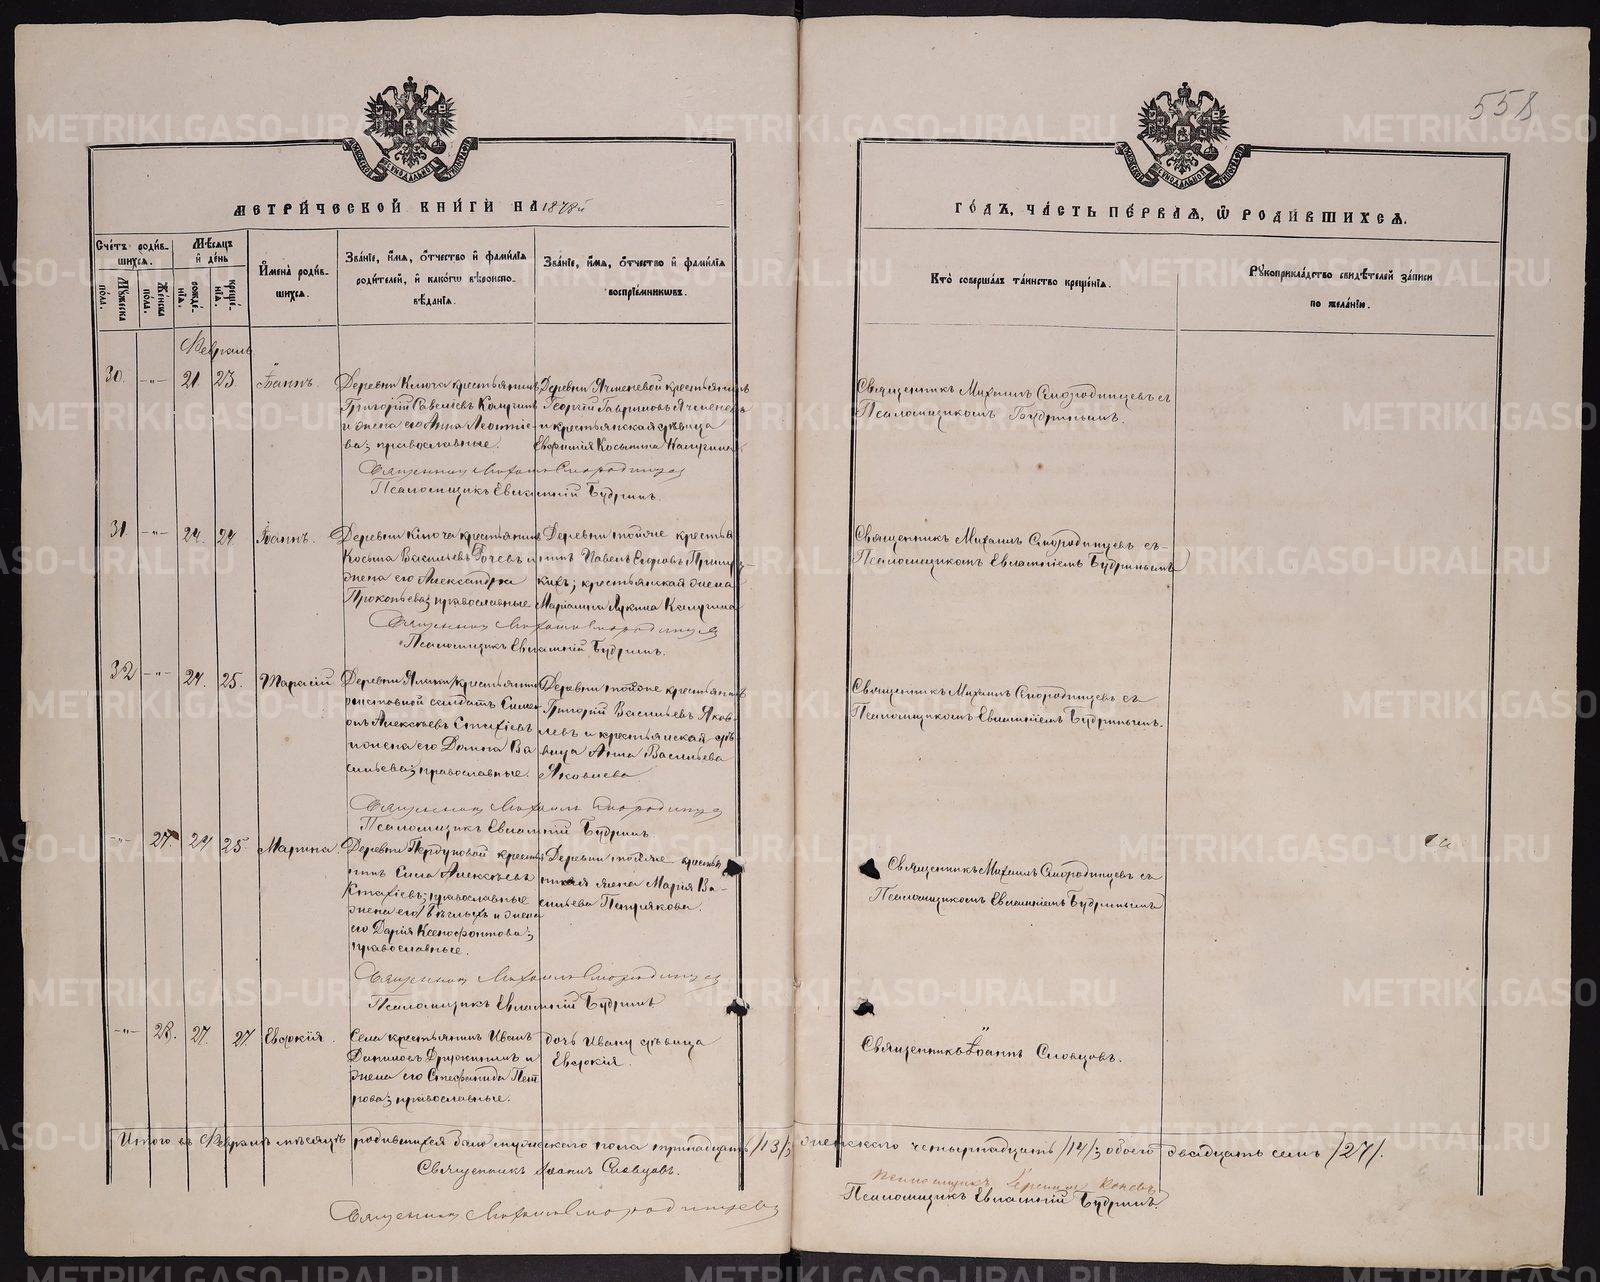 558
МЕТРИ́ЧЕСКОЙ КНИ́ГИ НА 1878й
ГО́ДЪ, ЧА́СТЬ ПЕ́РВАЯ, Ѿ РОДИ́ВШИХСЯ.
Сче́тъ роди́в-
шихся.
Мѣ́сяцъ
и де́нь
Му́жеска
по́ла.
Же́нска
по́ла.
рожде́-
нія.
креще́-
нія.
Имена̀ роди́в-
шихся.
Зва́ніе, и́мя, о́тчество и фами́лія
роди́телей, и како́гѡ вѣроиспо-
вѣ́данія.
Зва́ніе, и́мя, о́тчество и фами́лія
воспріе́мниковъ.
Кто̀ соверша́лъ та́инство креще́нія.
Рукоприкла́дство свидѣ́телей за́писи
по жела́нію.
Февраль
30. -"- 21. 23. Іоаннъ.
Деревни Ключа крестьянинъ
Григорій Савеліевъ Калугинъ
и жена его Анна Леонтіе-
ва; православные.
Деревни Ячменевой крестьянинъ
Георгій Гавриловъ Ячменевъ
и крестьянская дѣвица
Евфимія Косьмина Калугина
Священникъ Михаилъ Смородинцевъ съ
Псаломщикомъ Будринымъ.
Священникъ Михаилъ Смородинцевъ
Псаломщикъ Евлампій Будринъ.
31. -"- 24. 24 Іоаннъ.
Деревни Ключа крестьянинъ
Косьма Васильевъ и
жена его Александра
Прокопьева; православные
Деревни тойже крестья
нинъ Павелъ
кихъ; крестьянская жена
Маріамна Лукина Калугина
Священникъ Михаилъ Смородинцевъ съ-
Псаломщикомъ Евлампіемъ Будринымъ
Священникъ Михаилъ Смородинцевъ
Псаломщикъ Евлампій Будринъ.
32 -"- 24. 25. Тарасій
Деревни крестьянинъ
отставной солдатъ Симе
онъ Алексѣевъ Стахіевъ
и жена его Домна Ва
сильева; православные.
Деревни тойже крестьянинъ
Григорій Васильевъ Яков-
левъ и крестьянская дѣ-
вица Анна Васильева
Яковлева
Священникъ Михаилъ Смородинцевъ съ
Псаломщикомъ Евлампіемъ Будринымъ.
Священникъ Михаилъ Смородинцевъ
Псаломщикъ Евлампій Будринъ
-"- 27. 24 25. Марина.
Деревни крестья
нинъ Сила Алексѣевъ
православные
жена его и жена
его Дарія Ксенофонтова;
православные.
Деревни тойже крестья
нская жена Марія Ва-
сильева Петрякова.
Священникъ Михаилъ Смородинцевъ съ
Псаломщикомъ Евлампіемъ Будринымъ
Священникъ Михаилъ Смородинцевъ
Псаломщикъ Евлампій Будринъ
-"- 28. 27. 27. Евдокія.
Села крестьянинъ Иванъ
Даниловъ Дружининъ и
жена его Стефанида Пет
рова; православные.
дочь Ивану дѣвица
Евдокія.
Священникъ Іоаннъ Словцовъ.
Итого въ Февралѣ мѣсяцѣ родившихся было мужескаго пола тринадцать /13/; женскаго четырнадцать /14/; обоего двадцать семь /27/.
Священникъ Іоаннъ Словцовъ.
Священникъ Михаилъ Смородинцевъ
Псаломщикъ
Псаломщикъ Евлампій Будринъ.
METRIKI.GASO-URAL.RU